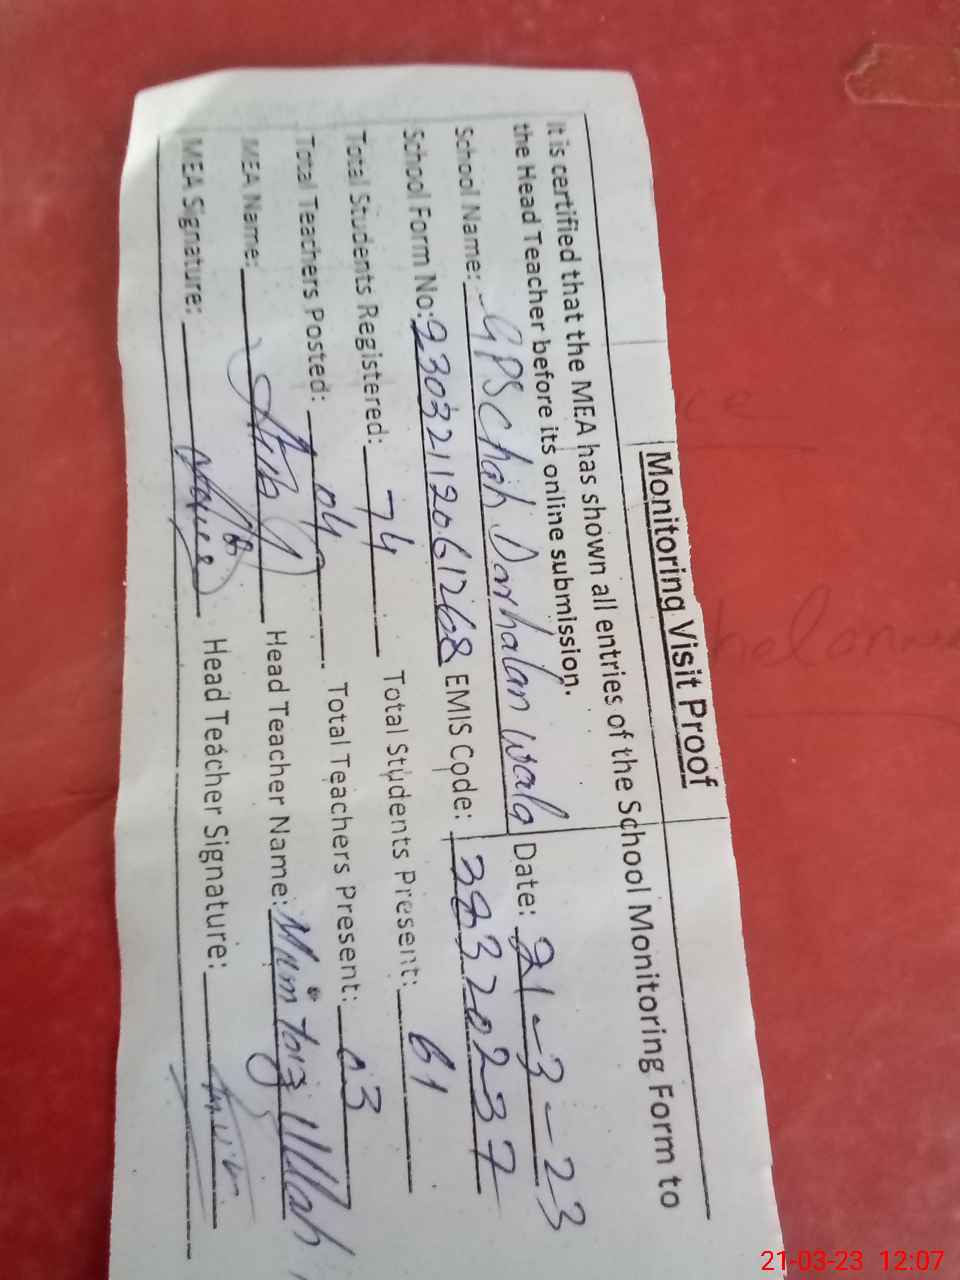 Monitoring Visit Proof
It is certified that the MEA has shown all entries of the School Monitoring Form to
the Head Teacher before its online submission.
School Name: GPS Chah Darkhalan wala Date: 21-3-23
School Form No: 23032112061268 EMIS Code: 38320237
Total Students Registered: 74 Total Students Present: 61
Total Teachers Posted: 04 Total Teachers Present: 03
MEA Name: Head Teacher Name: Mumtaz Ullah
MEA Signature: Head Teacher Signature:
21-03-23 12:07